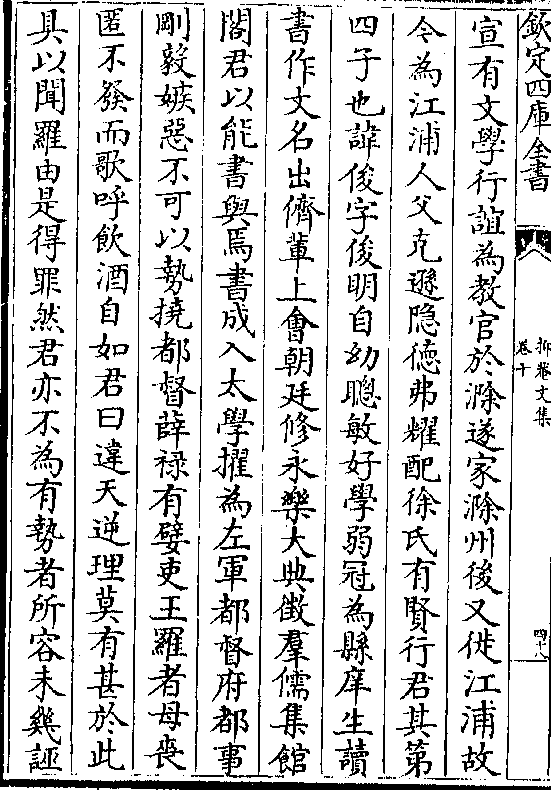 欽定四庫全書
抑菴文集
卷十
四十八
宣有文學行誼為教官於滁遂家滁州後又徙江浦故
今為江浦人父克遜隐德弗耀配徐氏有賢行君其第
四子也諱俊字俊明自幼聰敏好學弱冠為縣庠生讀
書作文名出儕輩上會朝廷修永樂大典徴羣儒集館
閣君以能書與焉書成入太學擢為左軍都督府都事
剛毅嫉惡不可以勢撓都督薛禄有嬖吏王羅者母喪
匿不發而歌呼飲酒自如君曰違天逆理莫有甚於此
具以聞羅由是得罪然君亦不為有勢者所容未幾誣